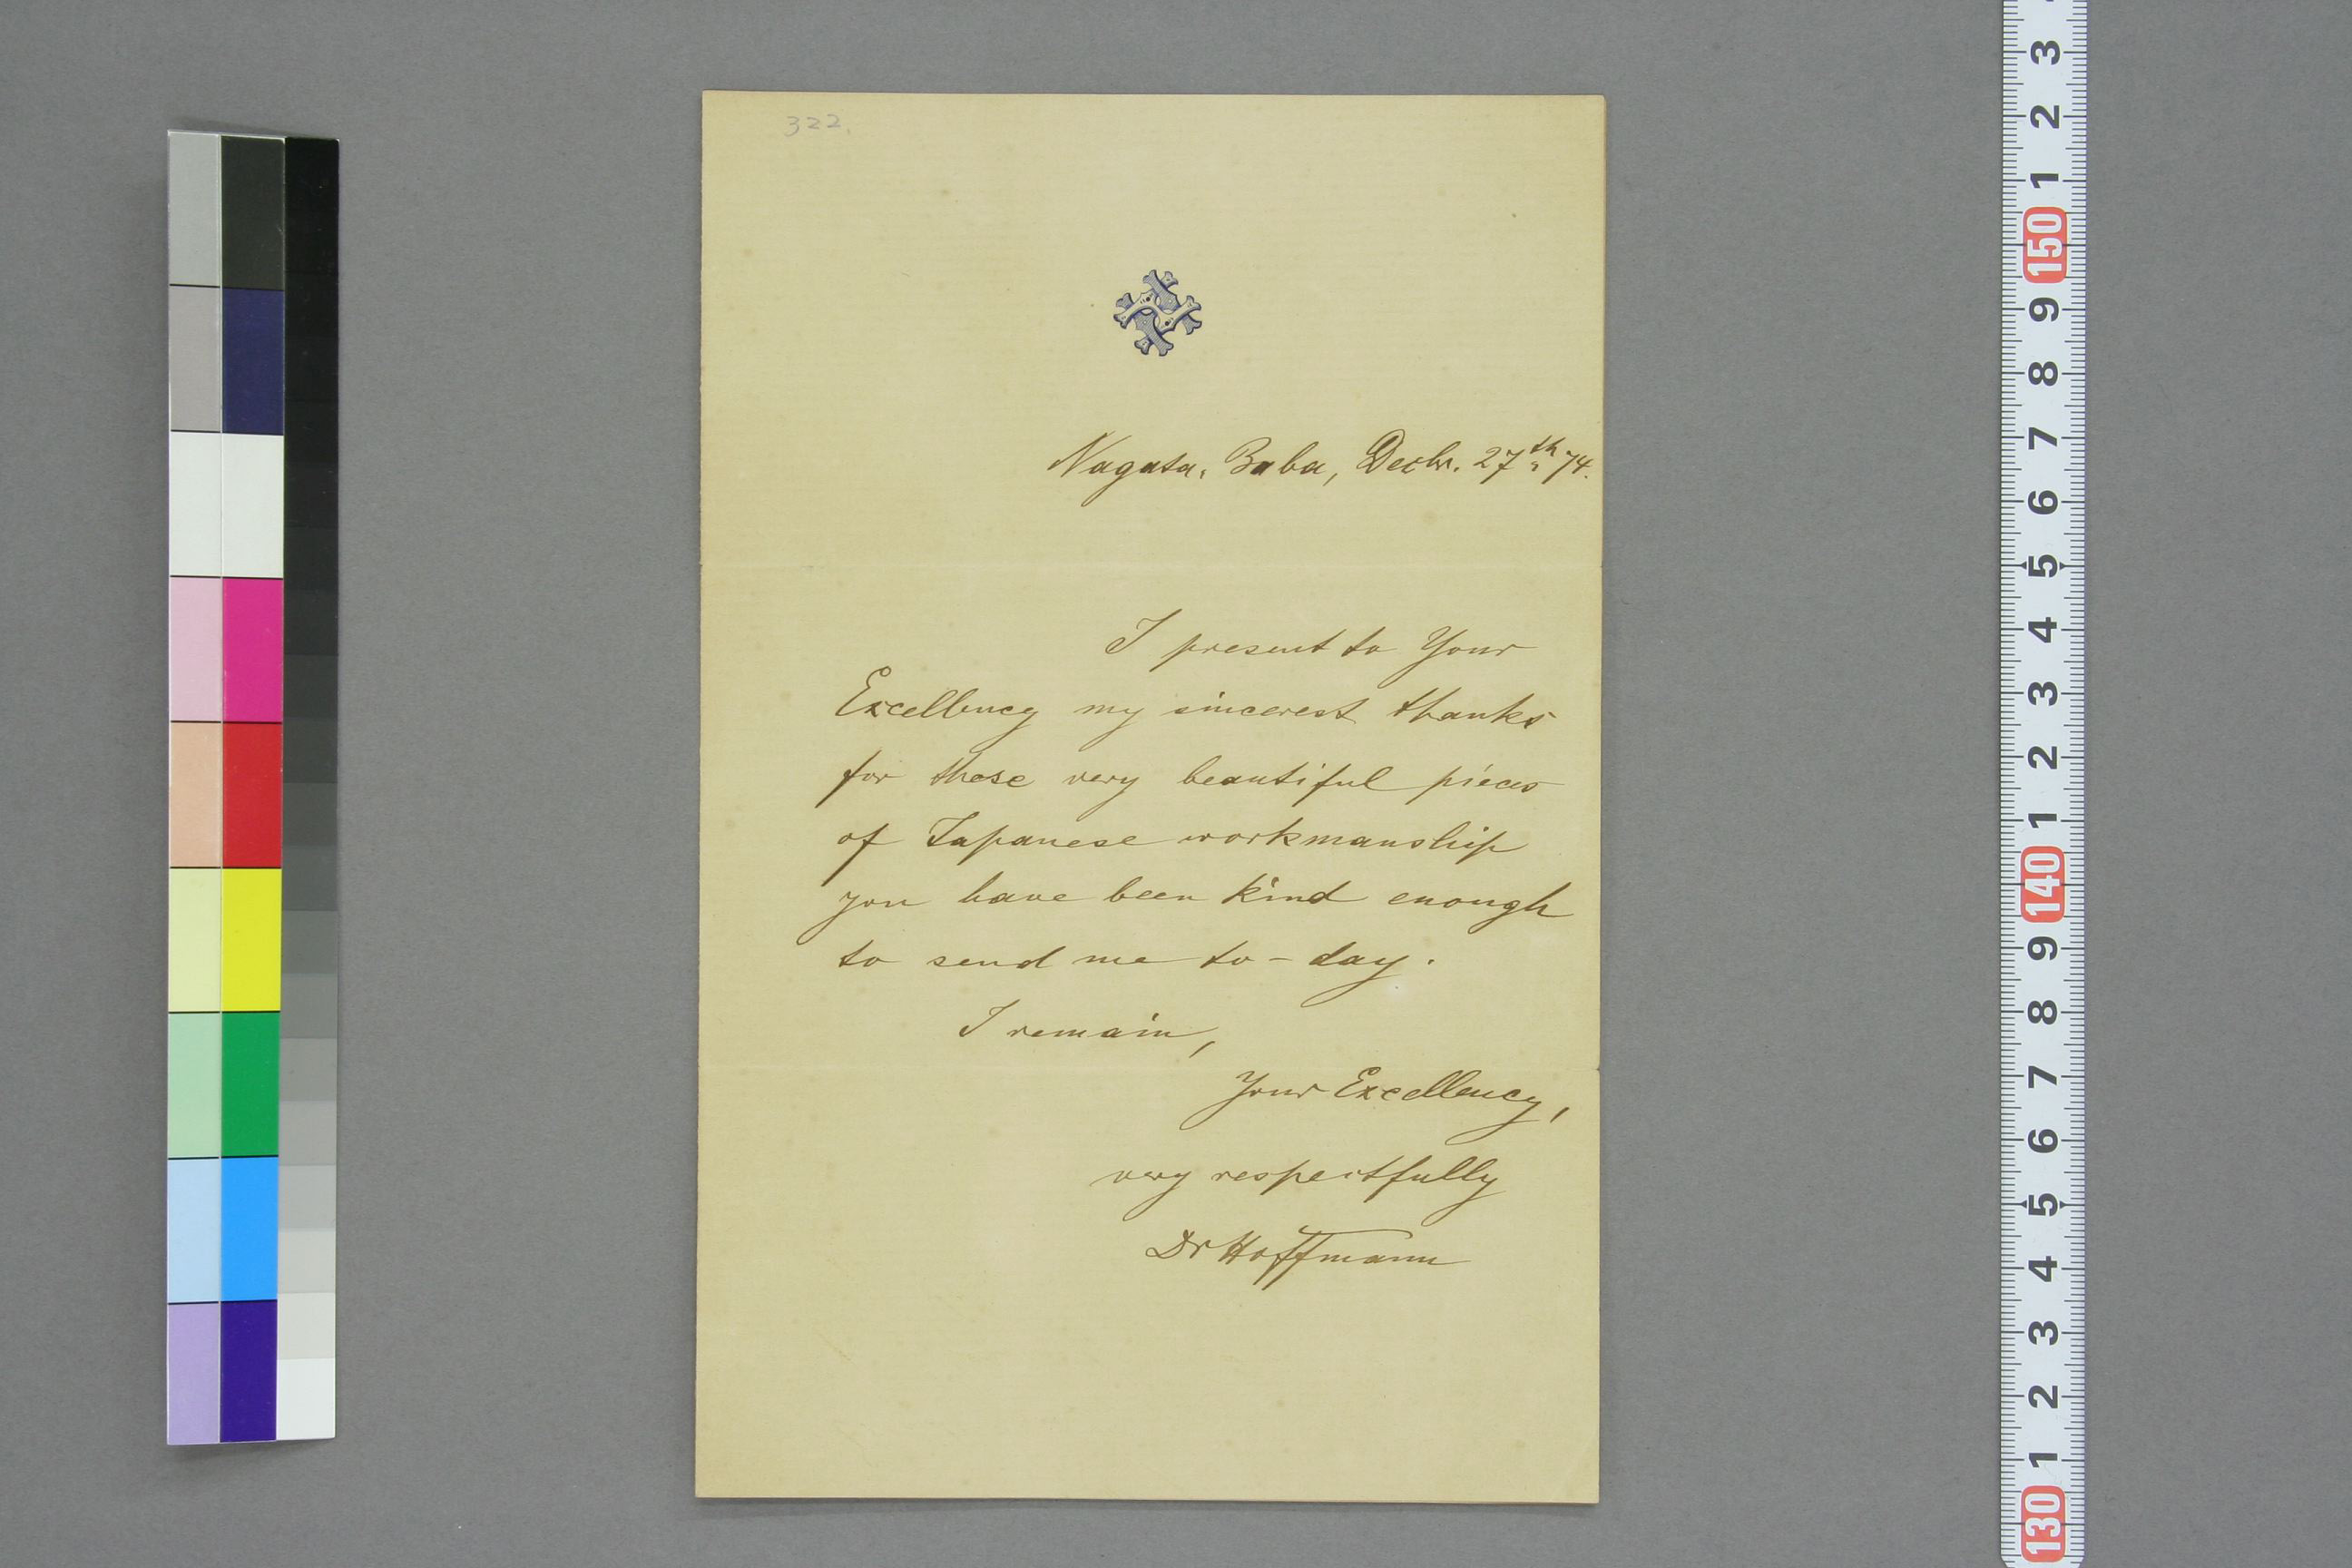 322.
Nagata, Baba, Decbr. 27th 74.
I present to Your
Excellency my sincerest thanks
for these very beautiful pieces
of Japanese workmanship
you have been kind enough
to send me to-day.
I remain,
Your Excellency,
very respectfully
Dr Hoffmann
3
2
1
150
9
8
7
6
5
4
3
2
1
140
9
8
7
6
5
4
3
2
1
130